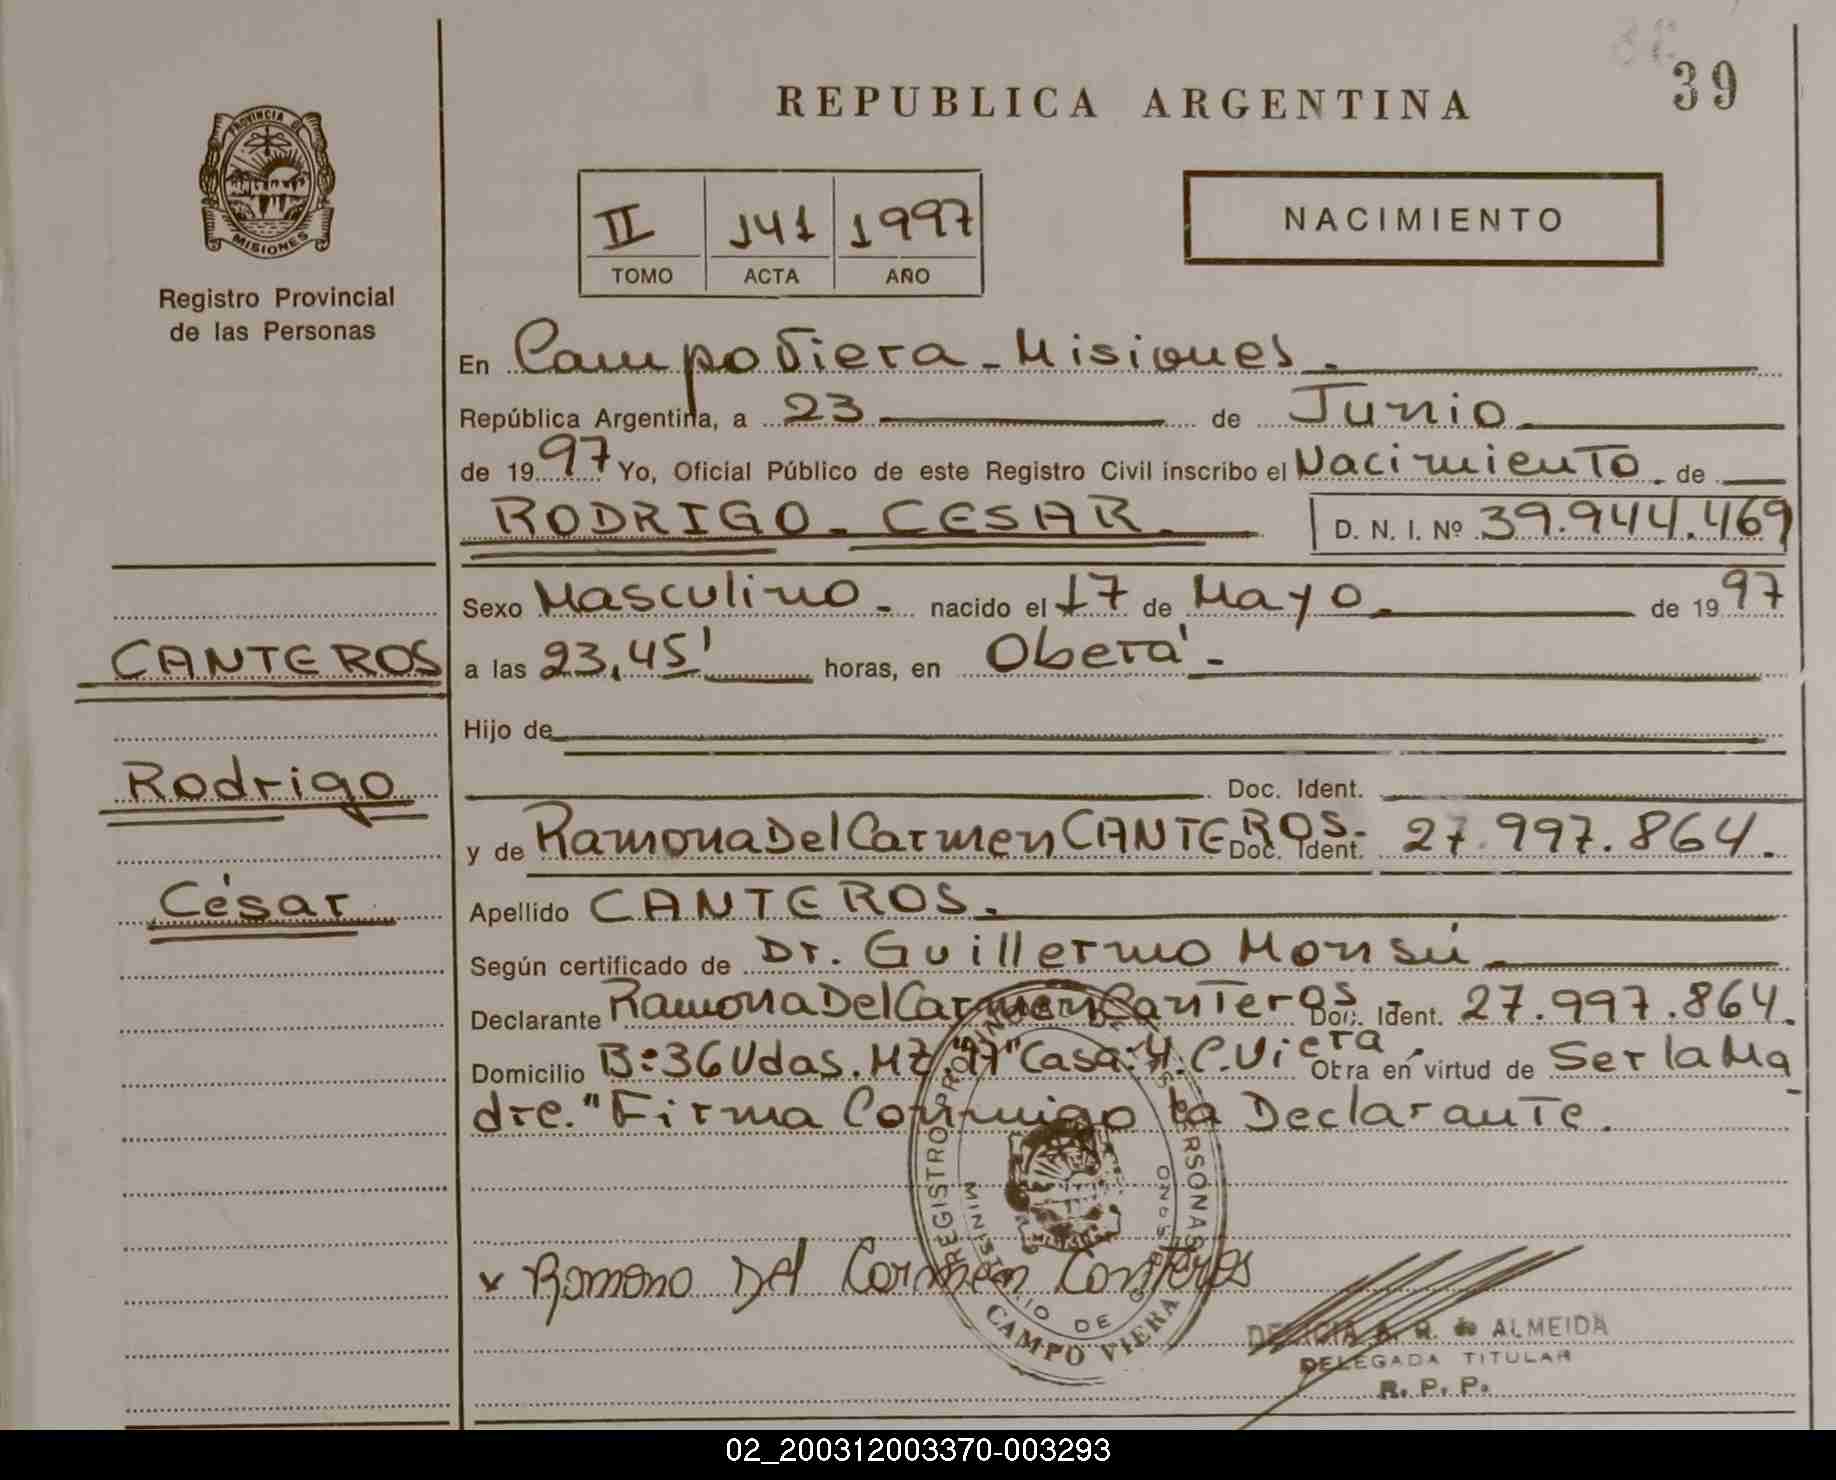 39
REPUBLICA ARGENTINA
PROVINCIA DE
MISIONES
Registro Provincial
de las Personas
II 141 1997
TOMO ACTA AÑO
NACIMIENTO
En Campo Viera - Misiones.
República Argentina, a 23 de Junio
de 1997 Yo, Oficial Público de este Registro Civil inscribo el Nacimiento. de
RODRIGO - CESAR. D. N. I. Nº 39.944.469
Sexo Masculino - nacido el 17 de Mayo. de 1997
CANTEROS
a las 23,45' horas, en Oberá -
Hijo de
Rodrigo
Doc. Ident.
y de Ramona Del Carmen CANTEROS.- Doc. Ident. 27.997.864.
César
Apellido CANTEROS.
Según certificado de Dr. Guillermo Monsú
Declarante Ramona Del Carmen Canteros - Doc. Ident. 27.997.864.
Domicilio B:36 Vdas. MZ. Casa:4. C. Viera. Otra en virtud de Ser la Ma-
dre." Firma Conmigo la Declarante.
REGISTRO PROVINCIAL DE LAS PERSONAS
MINISTERIO DE GOBIERNO
CAMPO VIERA
x Ramona Del Carmen Canteros
A. R. de ALMEIDA
DELEGADA TITULAR
R. P. P.
02_200312003370-003293